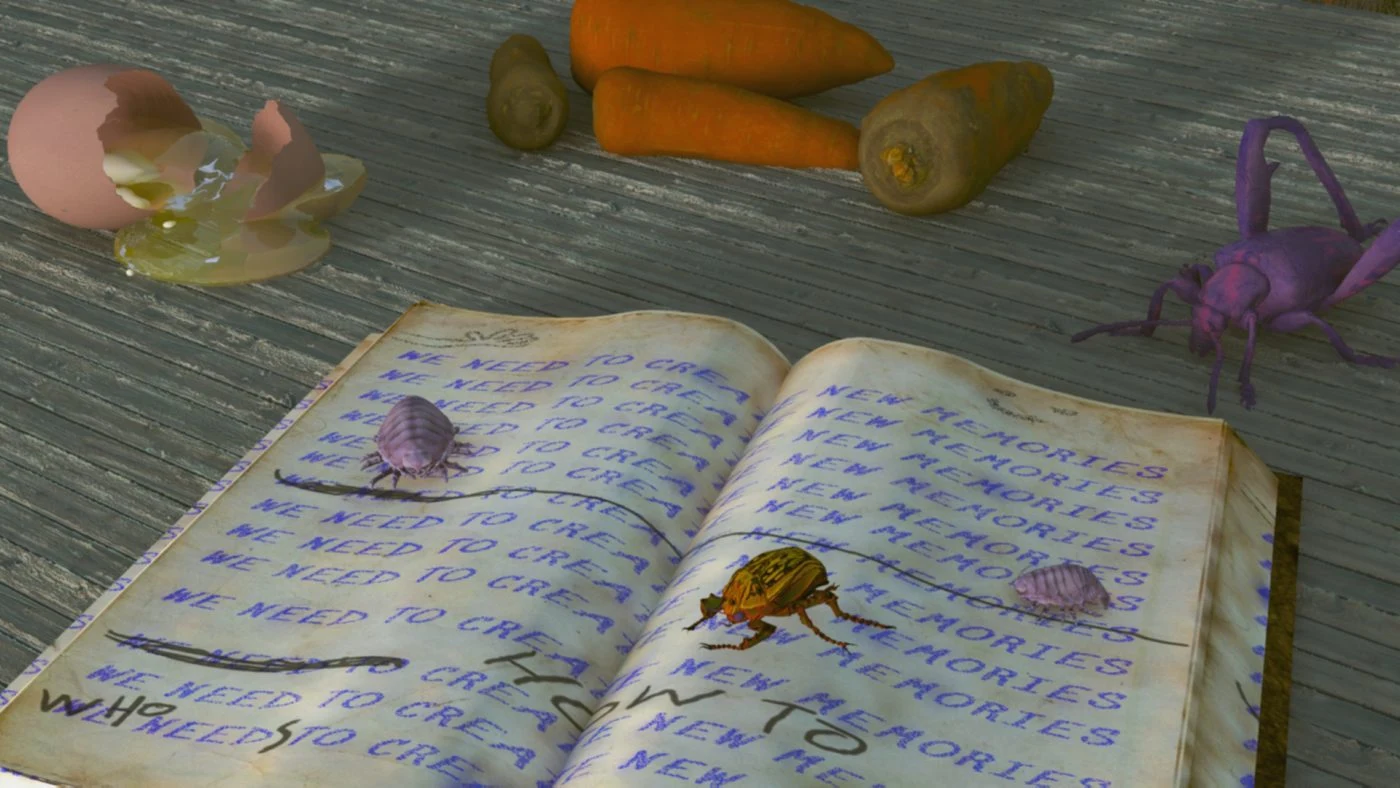 WE NEED TO CREA
WE NEED TO CREA
WE NEED TO CREA
WE TO CREA
WE TO CREA
TO CREA
WE NEED TO CREA
WE NEED TO CREA
WE NEED TO CREA
WE NEED TO CREA
WE NEED TO CREA
WE NEED TO CREA
WHO
WE NEEDS TO CREA
HOW TO
NEW MEMORIES
NEW MEMORIES
NEW MEMORIES
NEW MEMORIES
NEW MEMORIES
NEW MEMORIES
MEMORIES
MEMORIES
NEW MEMORIES
NEW MEMORIES
NEW MEMORIES